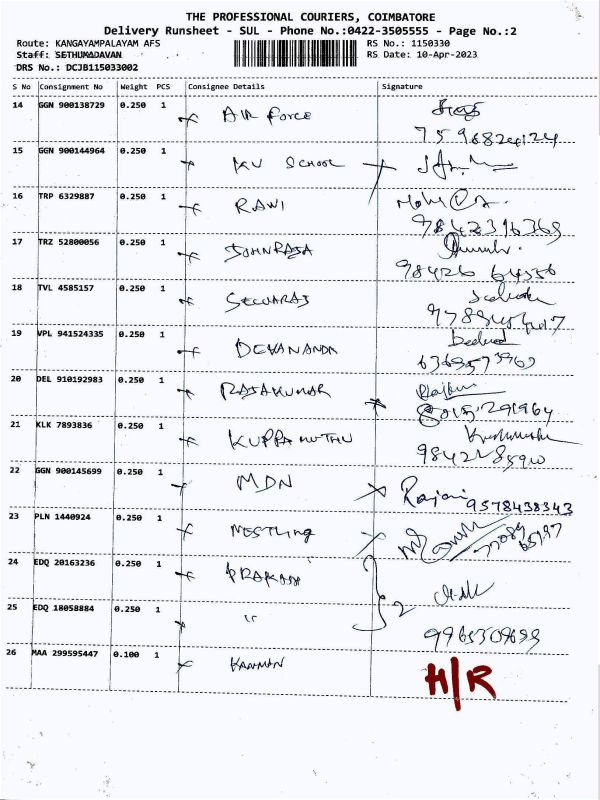 THE PROFESSIONAL COURIERS, COIMBATORE
Delivery Runsheet - SUL - Phone No.:0422-3505555 - Page No.:2
Route: KANGAYAMPALAYAM AFS RS No.: 1150330
Staff: SETHUMADAVAN RS Date: 10-Apr-2023
DRS No.: DCJB115033002
S No Consignment No Weight PCS Consignee Details Signature
14 GGN 900138729 0.250 1 AIR Force
15 GGN 900144964 0.250 1 KV SCHOOL
16 TRP 6329887 0.250 1 RAWI
9842396369
17 TRZ 52800056 0.250 1 JOHNRAJA
98426 64556
18 TVL 4585157 0.250 1 SELVARAJ
19 VPL 941524335 0.250 1 DEVANANDA
20 DEL 910192983 0.250 1 RAJAKUMAR
8015291964
21 KLK 7893836 0.250 1 KUPPAMUTHU
22 GGN 900145699 0.250 1 MDN Rajani 9578438343
23 PLN 1440924 0.250 1 NESTLING
24 EDQ 20163236 0.250 1 PRAKASH
2
25 EDQ 18058884 0.250 1 "
26 MAA 299595447 0.100 1 KANNAN H/R